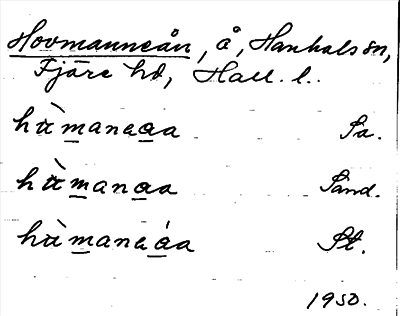 Hovmanneån, å, Hanhals sn,
Fjäre hd, Hall. l.
hùmanaaa Sa.
hùmanaa Sänd.
hùmanaáa St.
1950.